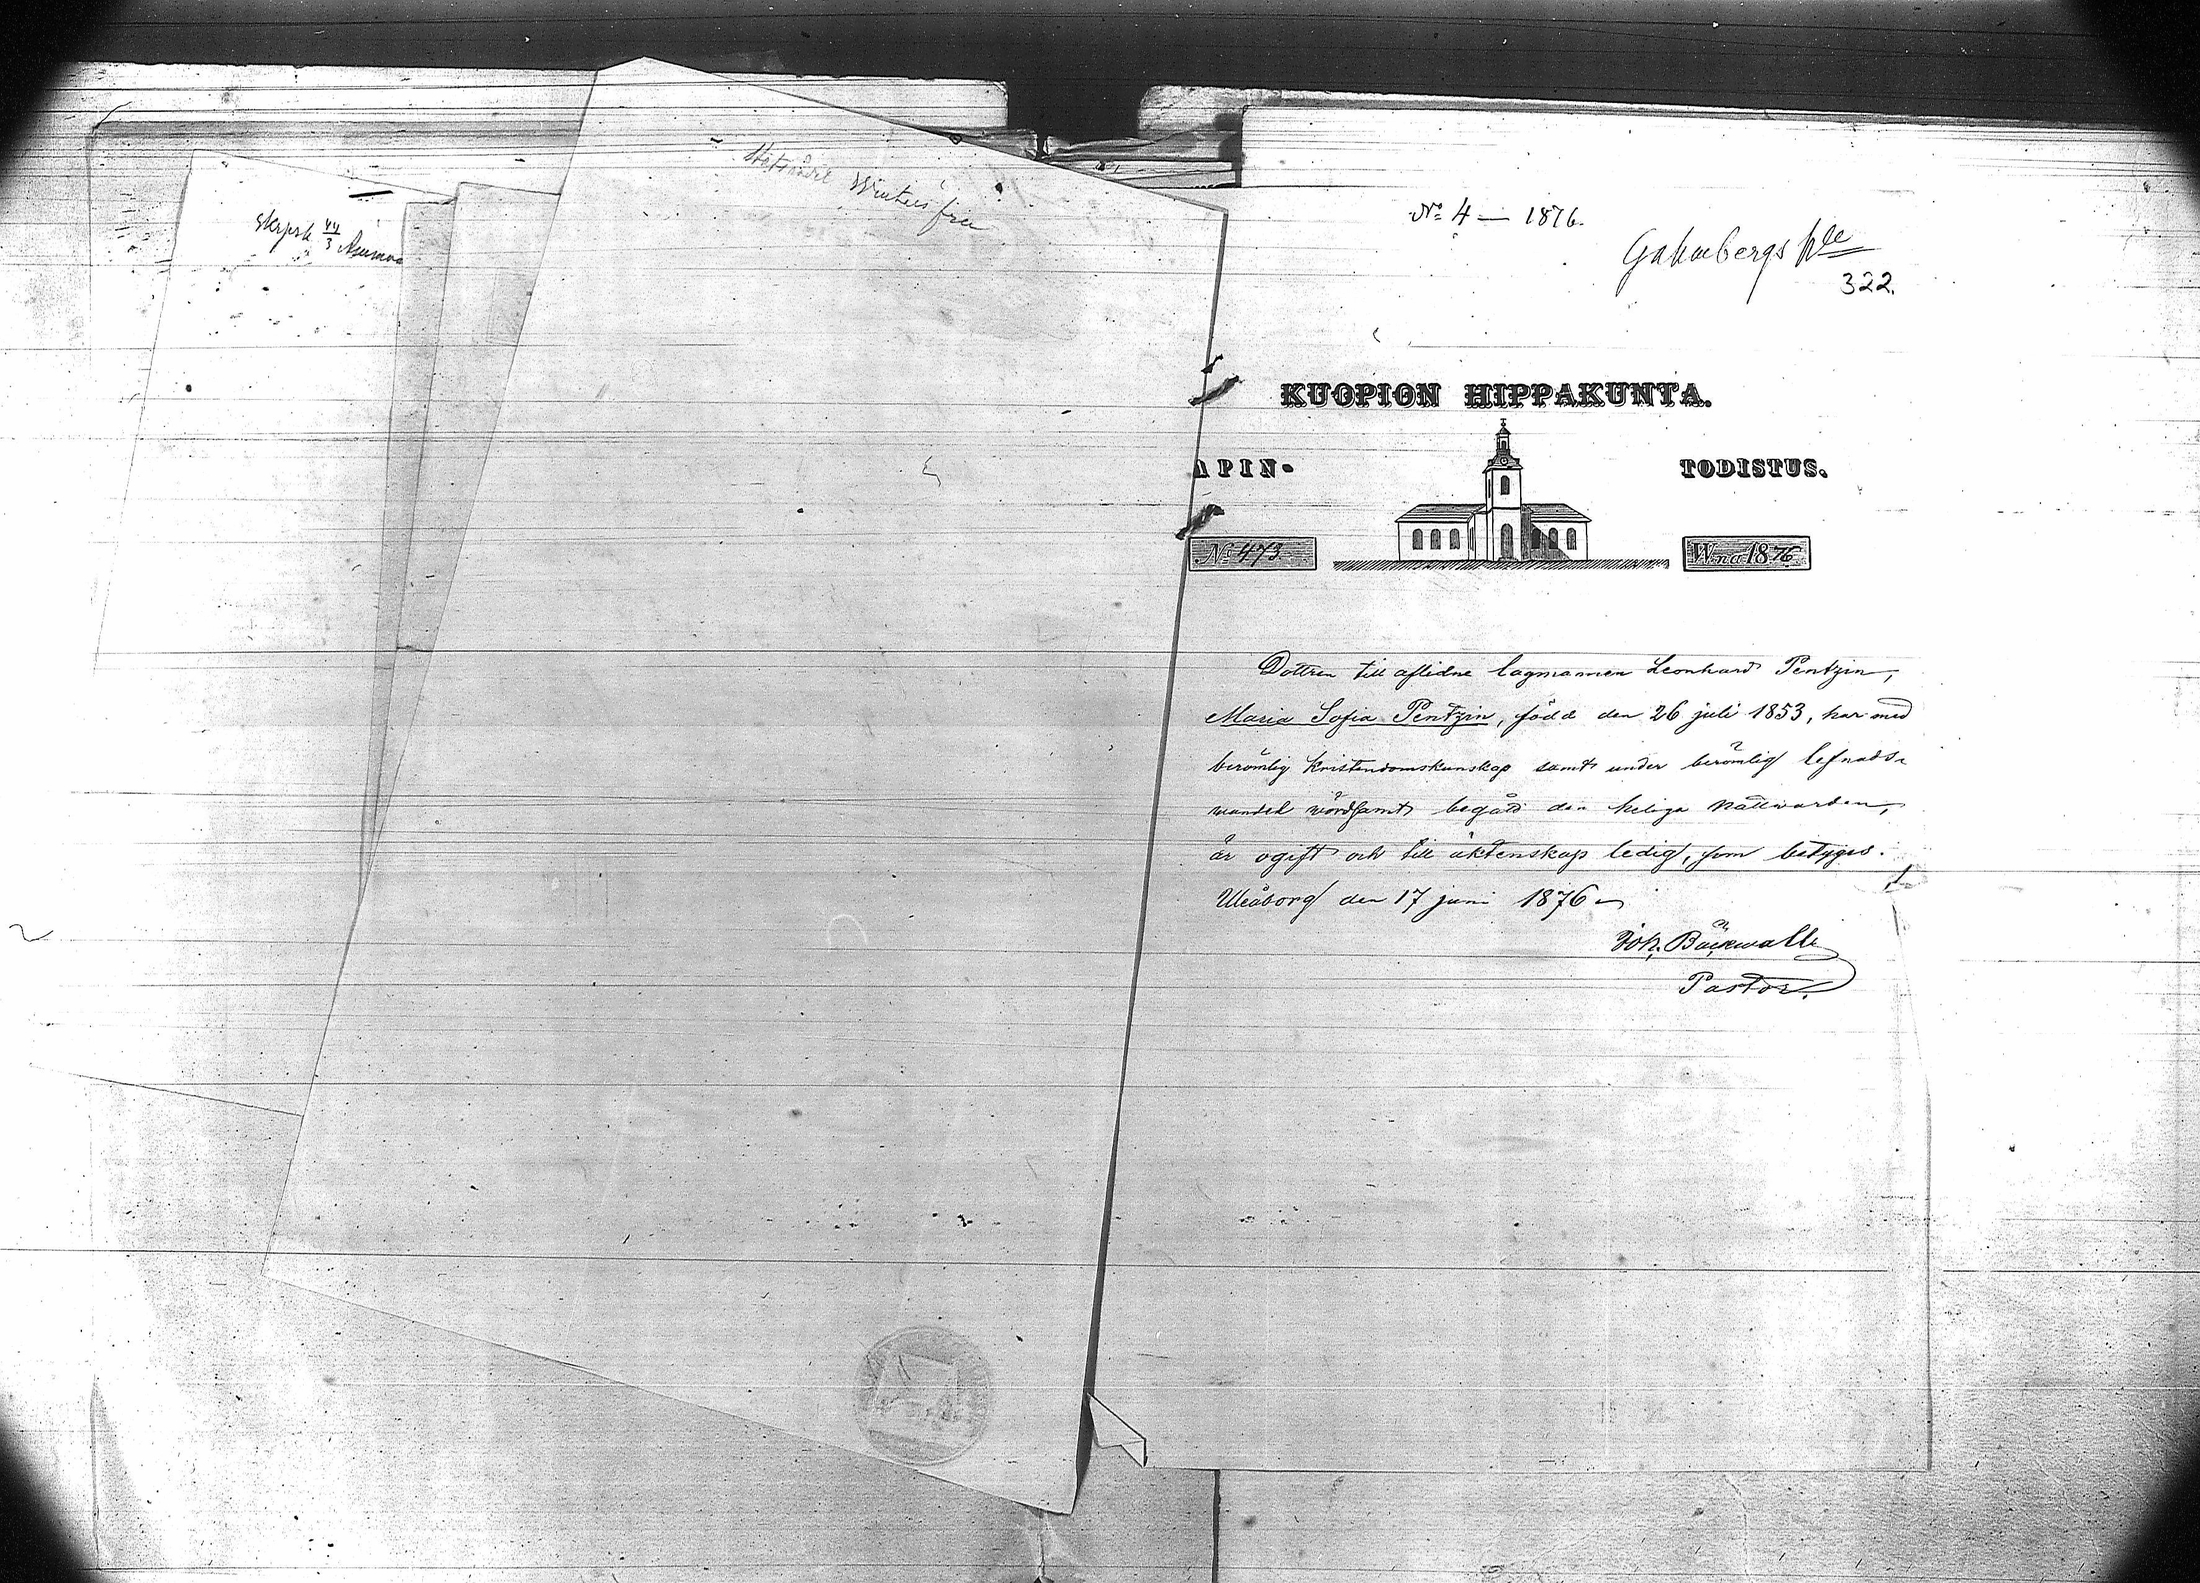 Statsrådet Winters fru
No 4 — 1876.
322.
KUOPION HIPPAKUNTA.
APIN- TODISTUS.
No 473 W.na 1876
Dottren till aflidne lagmannen Leonhard Pentzin,
Maria Sofia Pentzin, född den 26 juli 1853, har med
berömlig kristendomskunskap samt under berömlig lefnads-
wandel wördsamt begått den heliga nattwarden,
är ogift och till äktenskap ledig, som betygas.
Uleåborg den 17 juni 1876
Joh. Bäckwall
Pastor.